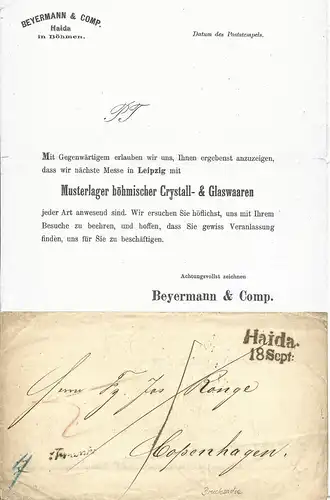 BEYERMANN & COMP.
Haida
in Böhmen.
Datum des Poststempels.
PT
Mit Gegenwärtigem erlauben wir uns, Ihnen ergebenst anzuzeigen,
dass wir nächste Messe in Leipzig mit
Musterlager böhmischer Crystall- & Glaswaaren
jeder Art anwesend sind. Wir ersuchen Sie höflichst, uns mit Ihrem
Besuche zu beehren, und hoffen, dass Sie gewiss Veranlassung
finden, uns für Sie zu beschäftigen.
Achtungsvollst zeichnen
Beyermann & Comp.
Haida.
18 Sept:
Herrn Fg. Jos Ronge
Copenhagen.